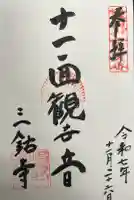 奉拝
十一面観世音
三鈷寺
令和七年
十一月二十六日